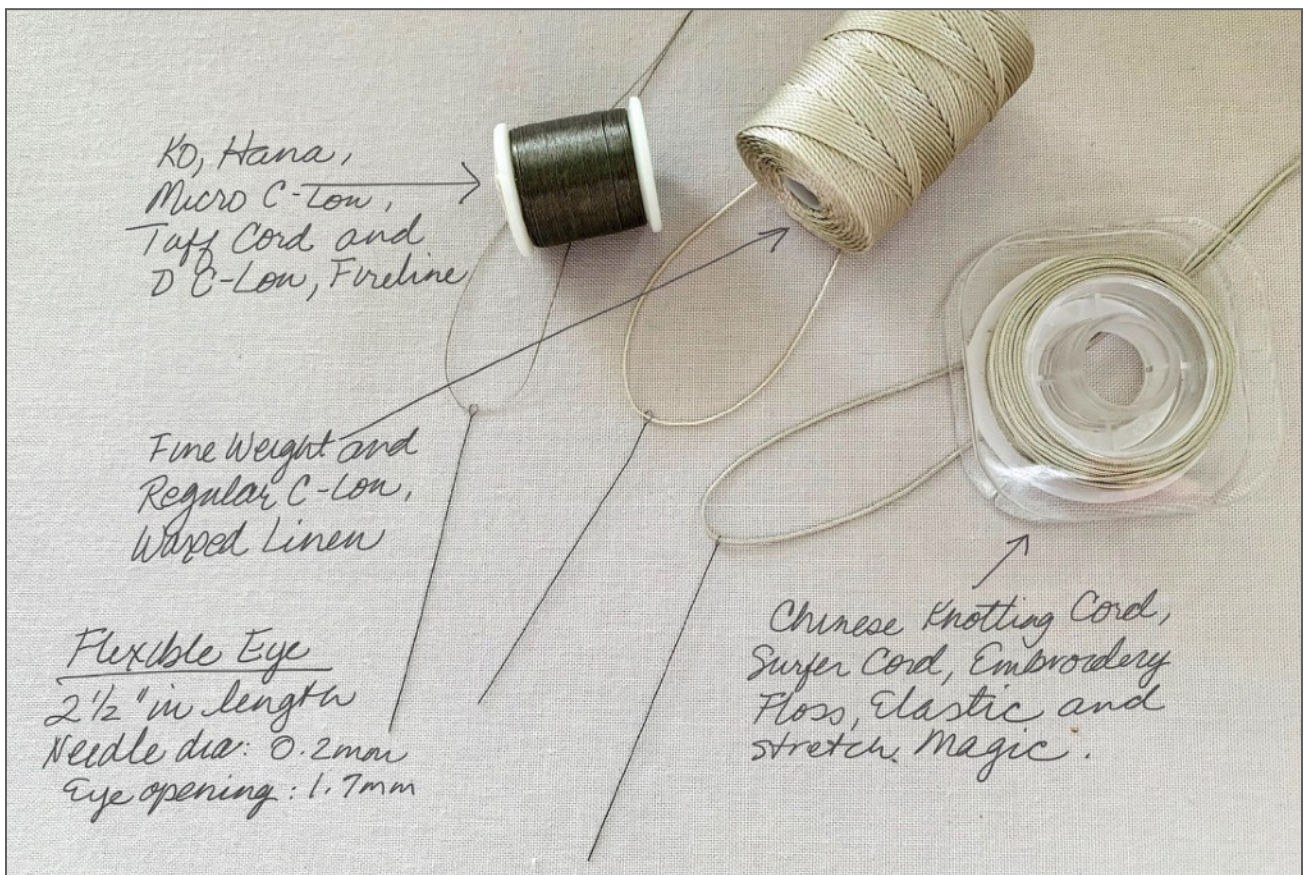 KO, Hana,
Micro C-Lon,
Tuff Cord and
D C-Lon, Fireline
Fine Weight and
Regular C-Lon,
Waxed Linen
Flexible Eye
2 1/2" in length
Needle dia: 0.2mm
Eye opening: 1.7mm
Chinese Knotting Cord,
Surfer Cord, Embroidery
Floss, Elastic and
Stretch Magic.